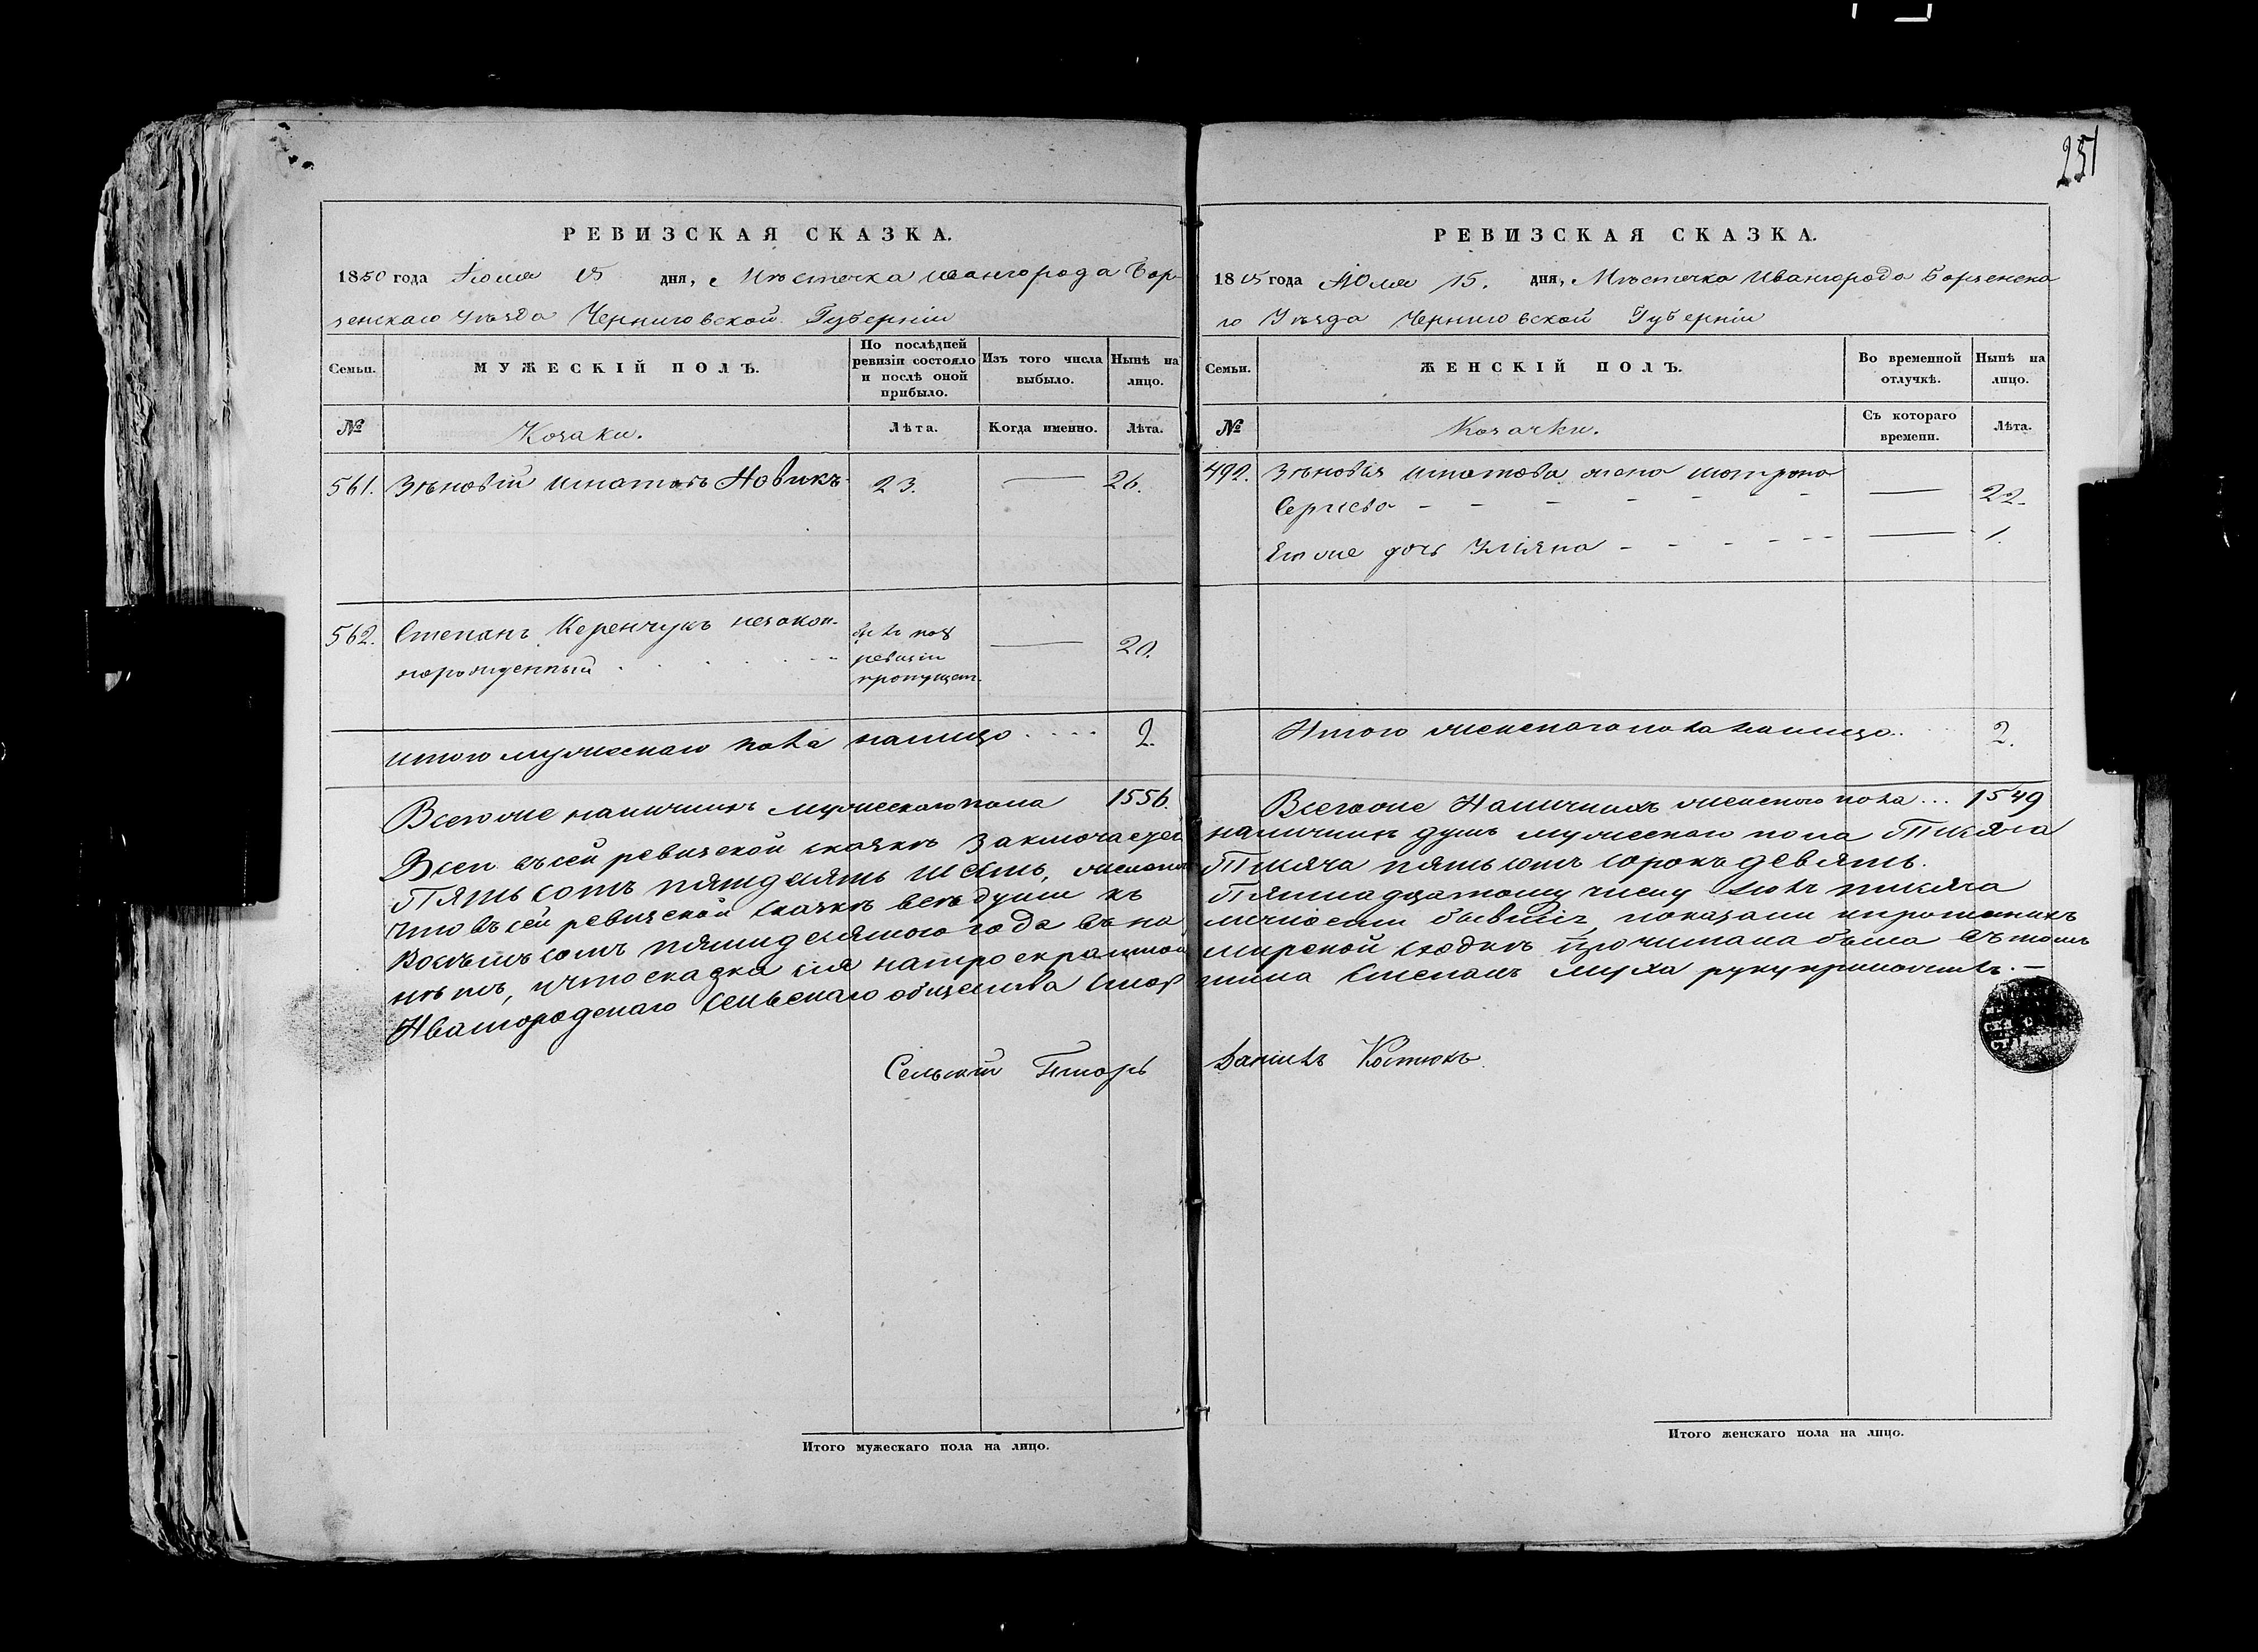 251
РЕВИЗСКАЯ СКАЗКА.
1850 года Іюля 15 дня, Мѣстечка Ивангорода Бор-
зенскаго Уѣзда Черниговской Губерніи
Семьи.
МУЖЕСКІЙ ПОЛЪ.
По послѣдней ревизіи состояло и послѣ оной прибыло.
Изъ того числа выбыло.
Нынѣ на лицо.
№
Козаки.
Лѣта.
Когда именно.
Лѣта.
561. Зѣновій Игнатовъ Новикъ 23. — 26.
562. Степанъ Керенчукъ незакон-
норожденный
ревизіи
пропущен.
— 20.
итого мужескаго пола налицо .... 2.
Всего же наличныхъ мужескаго пола 1556.
РЕВИЗСКАЯ СКАЗКА.
1815 года Июля 15. дня, Мѣстечка Ивангорода Борзенска
го Уѣзда Черниговской Губерніи
Семьи.
ЖЕНСКІЙ ПОЛЪ.
Во временной отлучкѣ.
Нынѣ на лицо.
№
Козачки.
Съ котораго времени.
Лѣта.
492. Зѣновія Игнатова жена Мотрона
Сергіева - - - - — 22.
Его же дочь Уліяна - - - - — 1.
Итого женскаго пола налицо.. 2.
Всего же Наличныхъ женского пола ... 1549
Всей въ сей ревизской сказкѣ Заключается наличныхъ душъ мужескаго пола Тисяча
Пять сотъ пятдесятъ шесть, женскаго Тисяча пять сотъ сорокъ девять.
что въ сей ревизской сказкѣ всѣ души къ Пятнадцатому числу Іюль тисяча
Восѣмъ сотъ пятидесятого года въ на личности бывшіе показани
нѣтъ, и что сказка сія на мирской сходкѣ прочитана была въ томъ
Ивангородскаго Сельскаго общества Стар шина Степанъ Муха руку приложилъ. —
Сельскій Писарь Данилъ Костюкъ.
Итого мужескаго пола на лицо.
Итого женскаго пола на лицо.